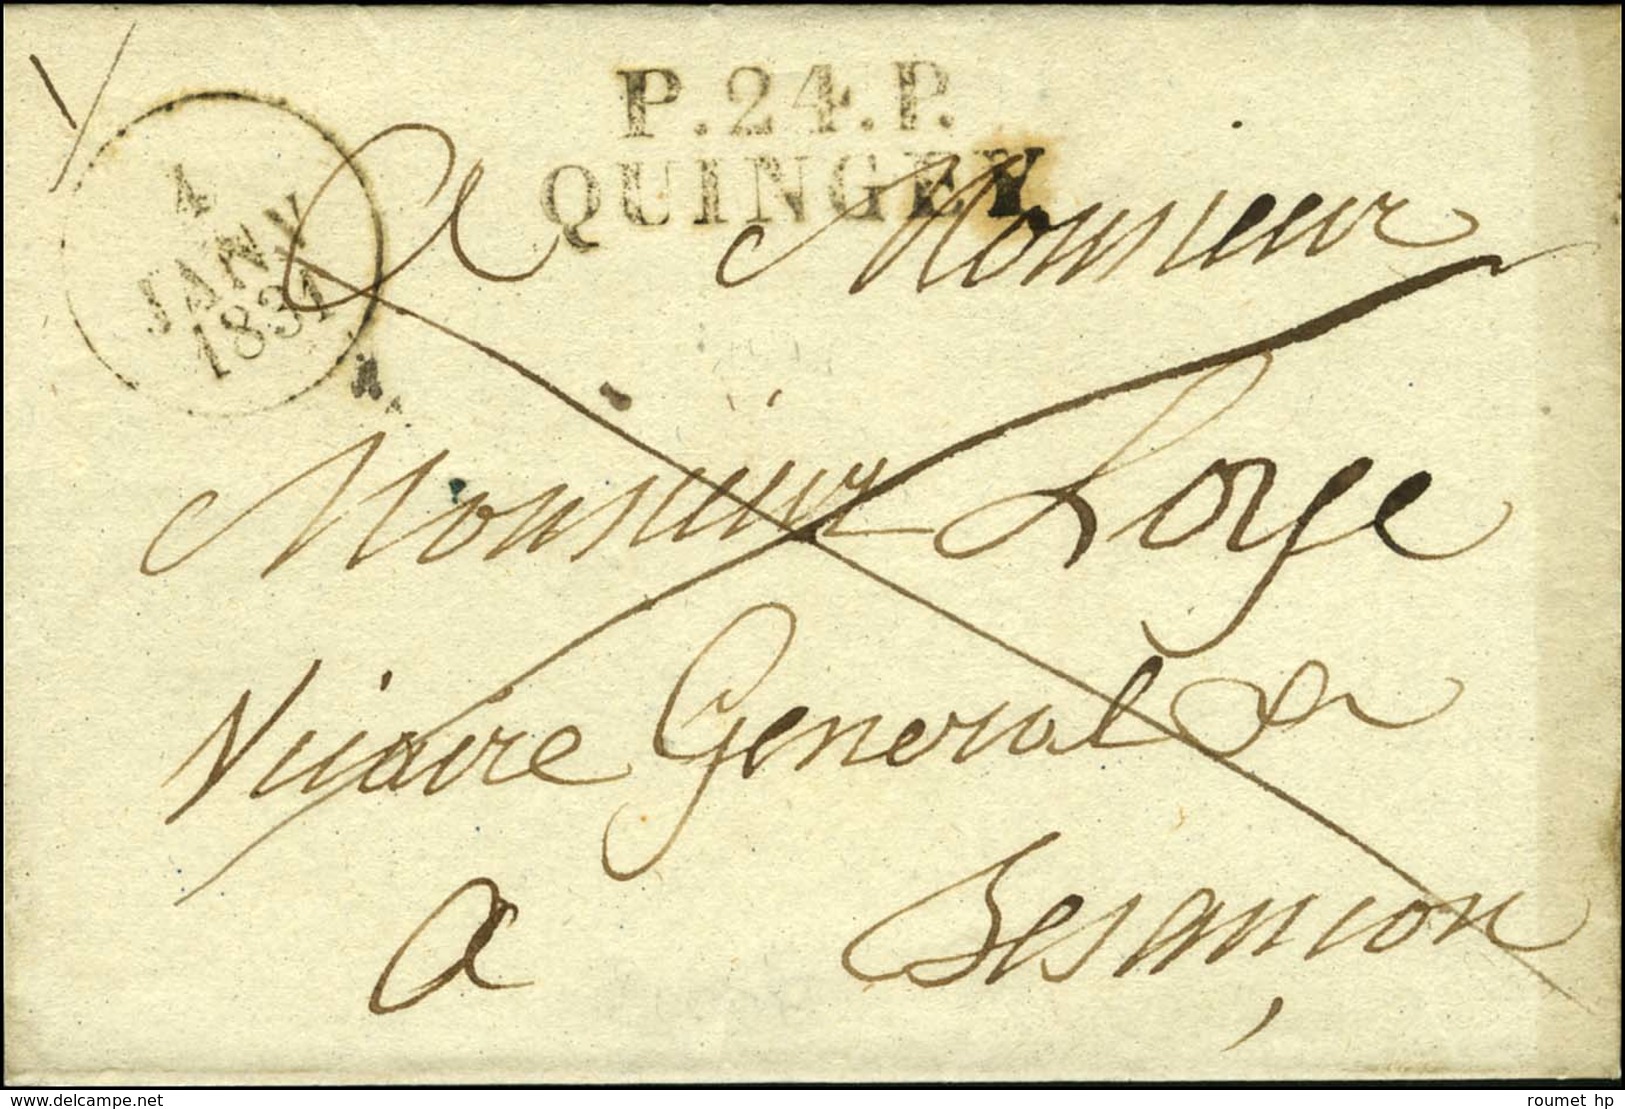 P.24.P.
QUINGEY
4
JANV
1831
A Monsieur
Monsieur Lorge
Vicaire General
a Besançon
www.delcampe.net
roumet hp